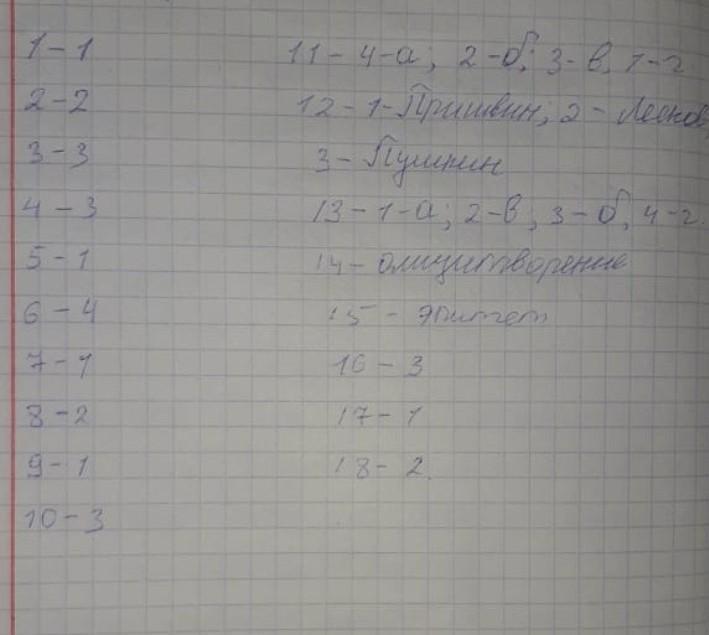 1-1
2-2
3-3
4-3
5-1
6-4
7-1
8-2
9-1
10-3
11-4-а; 2-б; 3-в, 1-г
12-1-Пришвин; 2-Лесков,
3-Пушкин
13-1-а; 2-в; 3-б, 4-г.
14-олицитворение
15-эпитет
16-3
17-1
18-2.